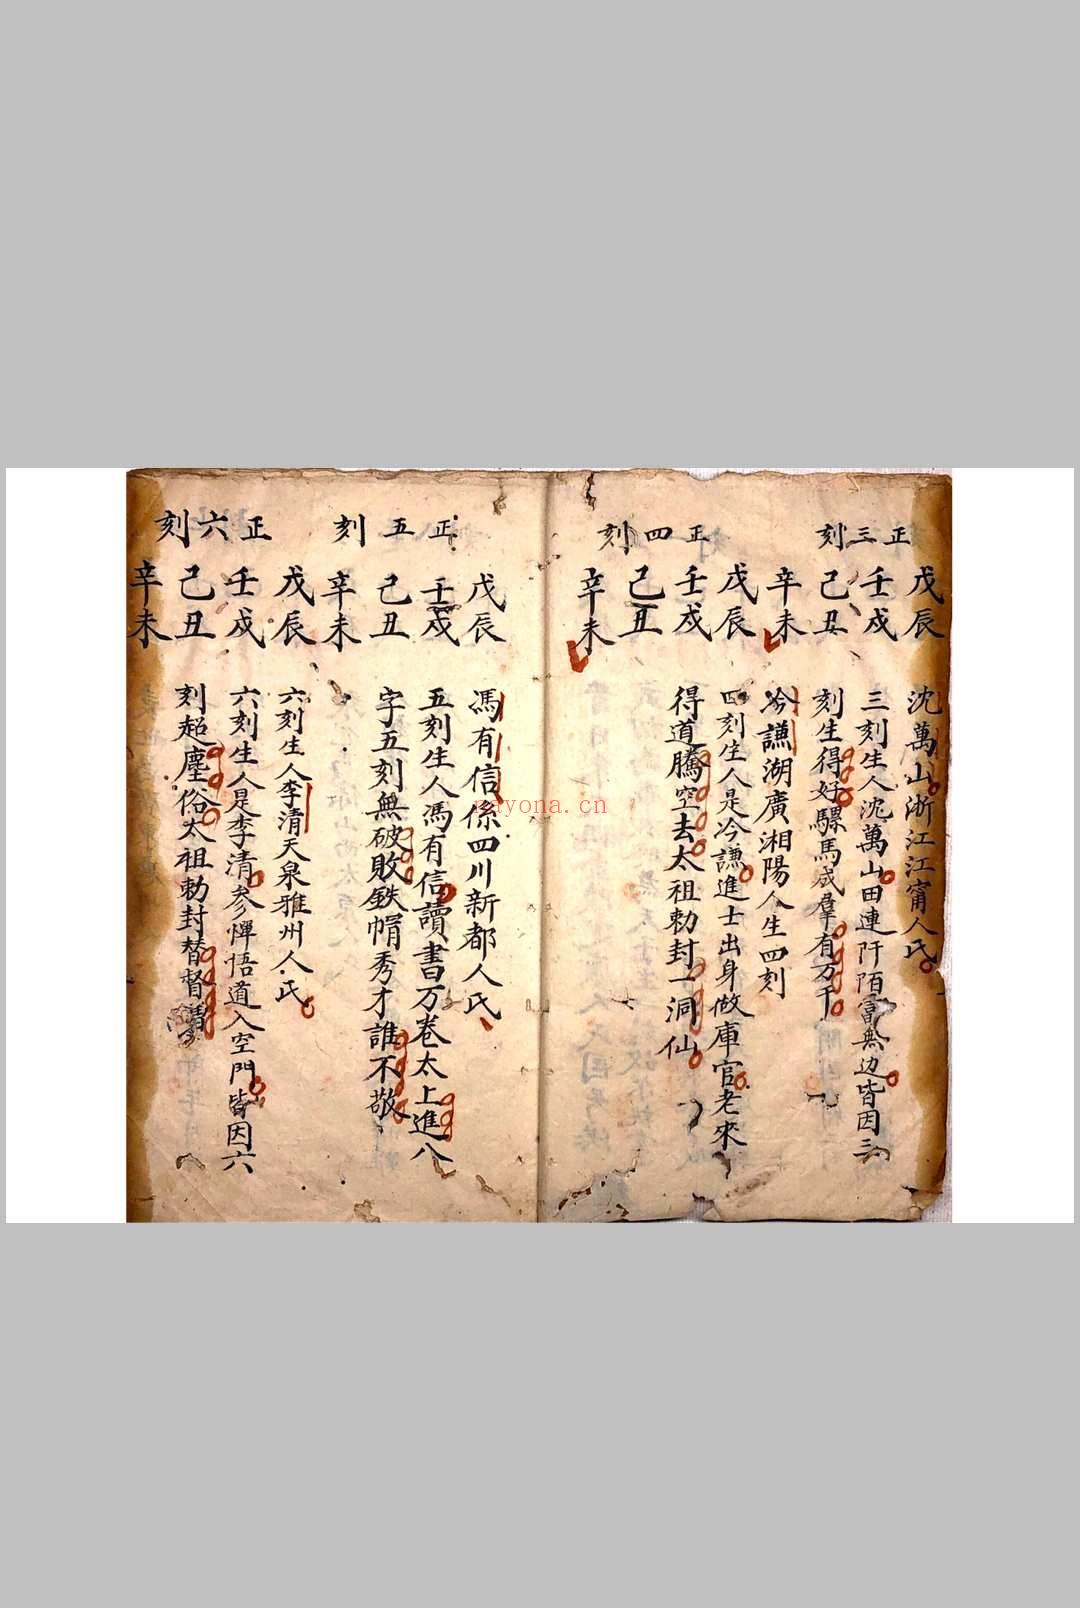 正三刻
戊辰 沈萬山浙江江甯人氏
壬戌 三刻生人沈萬山田連阡陌富無边皆因三
己丑 刻生得好騾馬成羣有万千
辛未 冷謙湖廣湘陽人生四刻
正四刻
戊辰 四刻生人是冷謙進士出身做庫官老來
壬戌 得道騰空去太祖勅封一洞仙
己丑
辛未
正五刻
戊辰 馮有信係四川新都人氏
壬戌 五刻生人馮有信讀書万卷太上進八
己丑 字五刻無破敗鉄帽秀才誰不敬
辛未
正六刻
戊辰 六刻生人李清天泉雅州人氏
壬戌 六刻生人是李清参惮悟道入空門皆因六
己丑 刻超塵俗太祖勅封替督
辛未